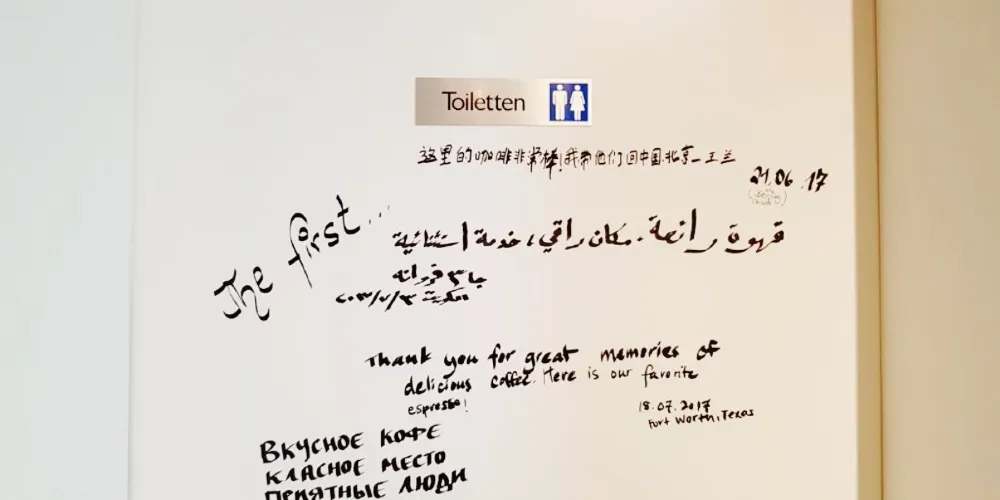 Toiletten
这里的咖啡非常棒!我带他们回中国.北京_王兰
21.06.17
The first...
قهوة رائعة. مكان راقي، خدمة استثنائية
الكويت
Thank you for great memories of
delicious coffee. Here is our favorite
espresso!
18.07.2017
Fort Worth, Texas
ВКУСНОЕ КОФЕ
КЛАСНОЕ МЕСТО
ПРИЯТНЫЕ ЛЮДИ